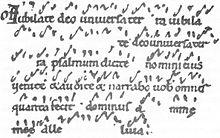 Iubilate deo uniuersa ter ra iubila
te deo uniuersa ter
ra psalmum dicite nomini eius
uenite & audite & narrabo uob omnes
quanta fecit dominus anime
mee alle luia.